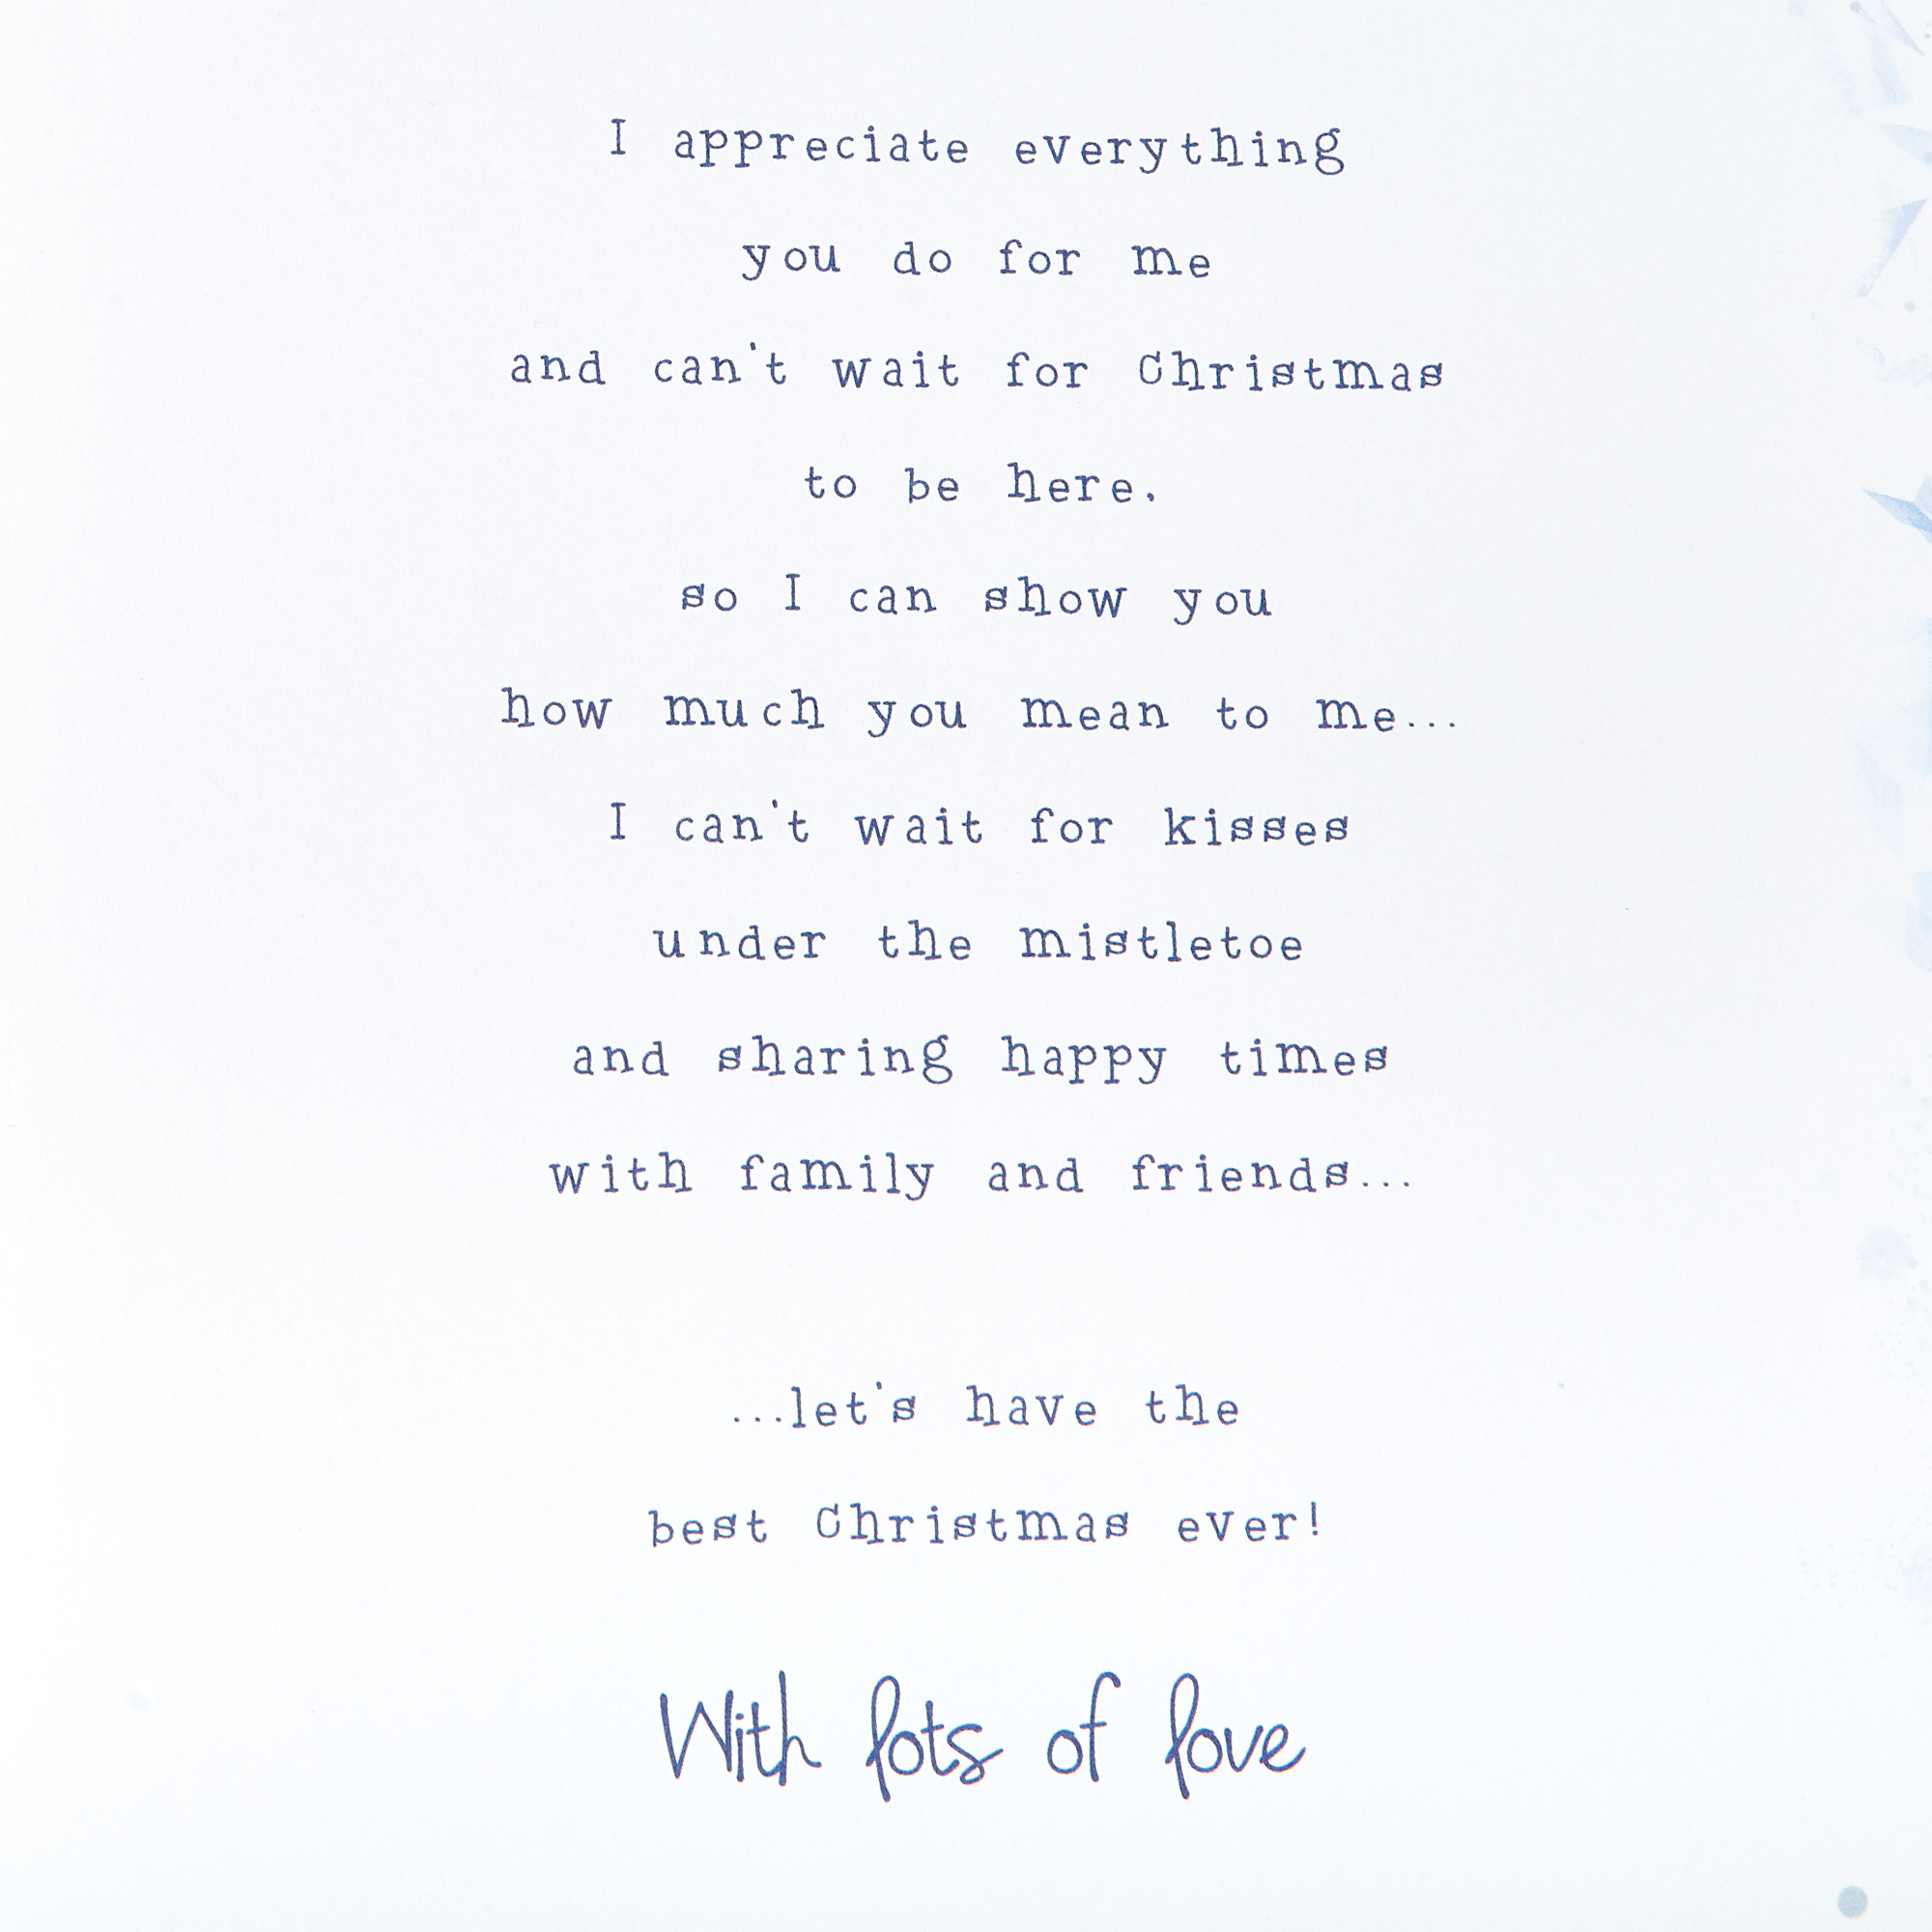 I appreciate everything
you do for me
and can't wait for Christmas
to be here.
so I can show you
how much you mean to me...
I can't wait for kisses
under the mistletoe
and sharing happy times
with family and friends...
...let's have the
best Christmas ever!
With lots of love